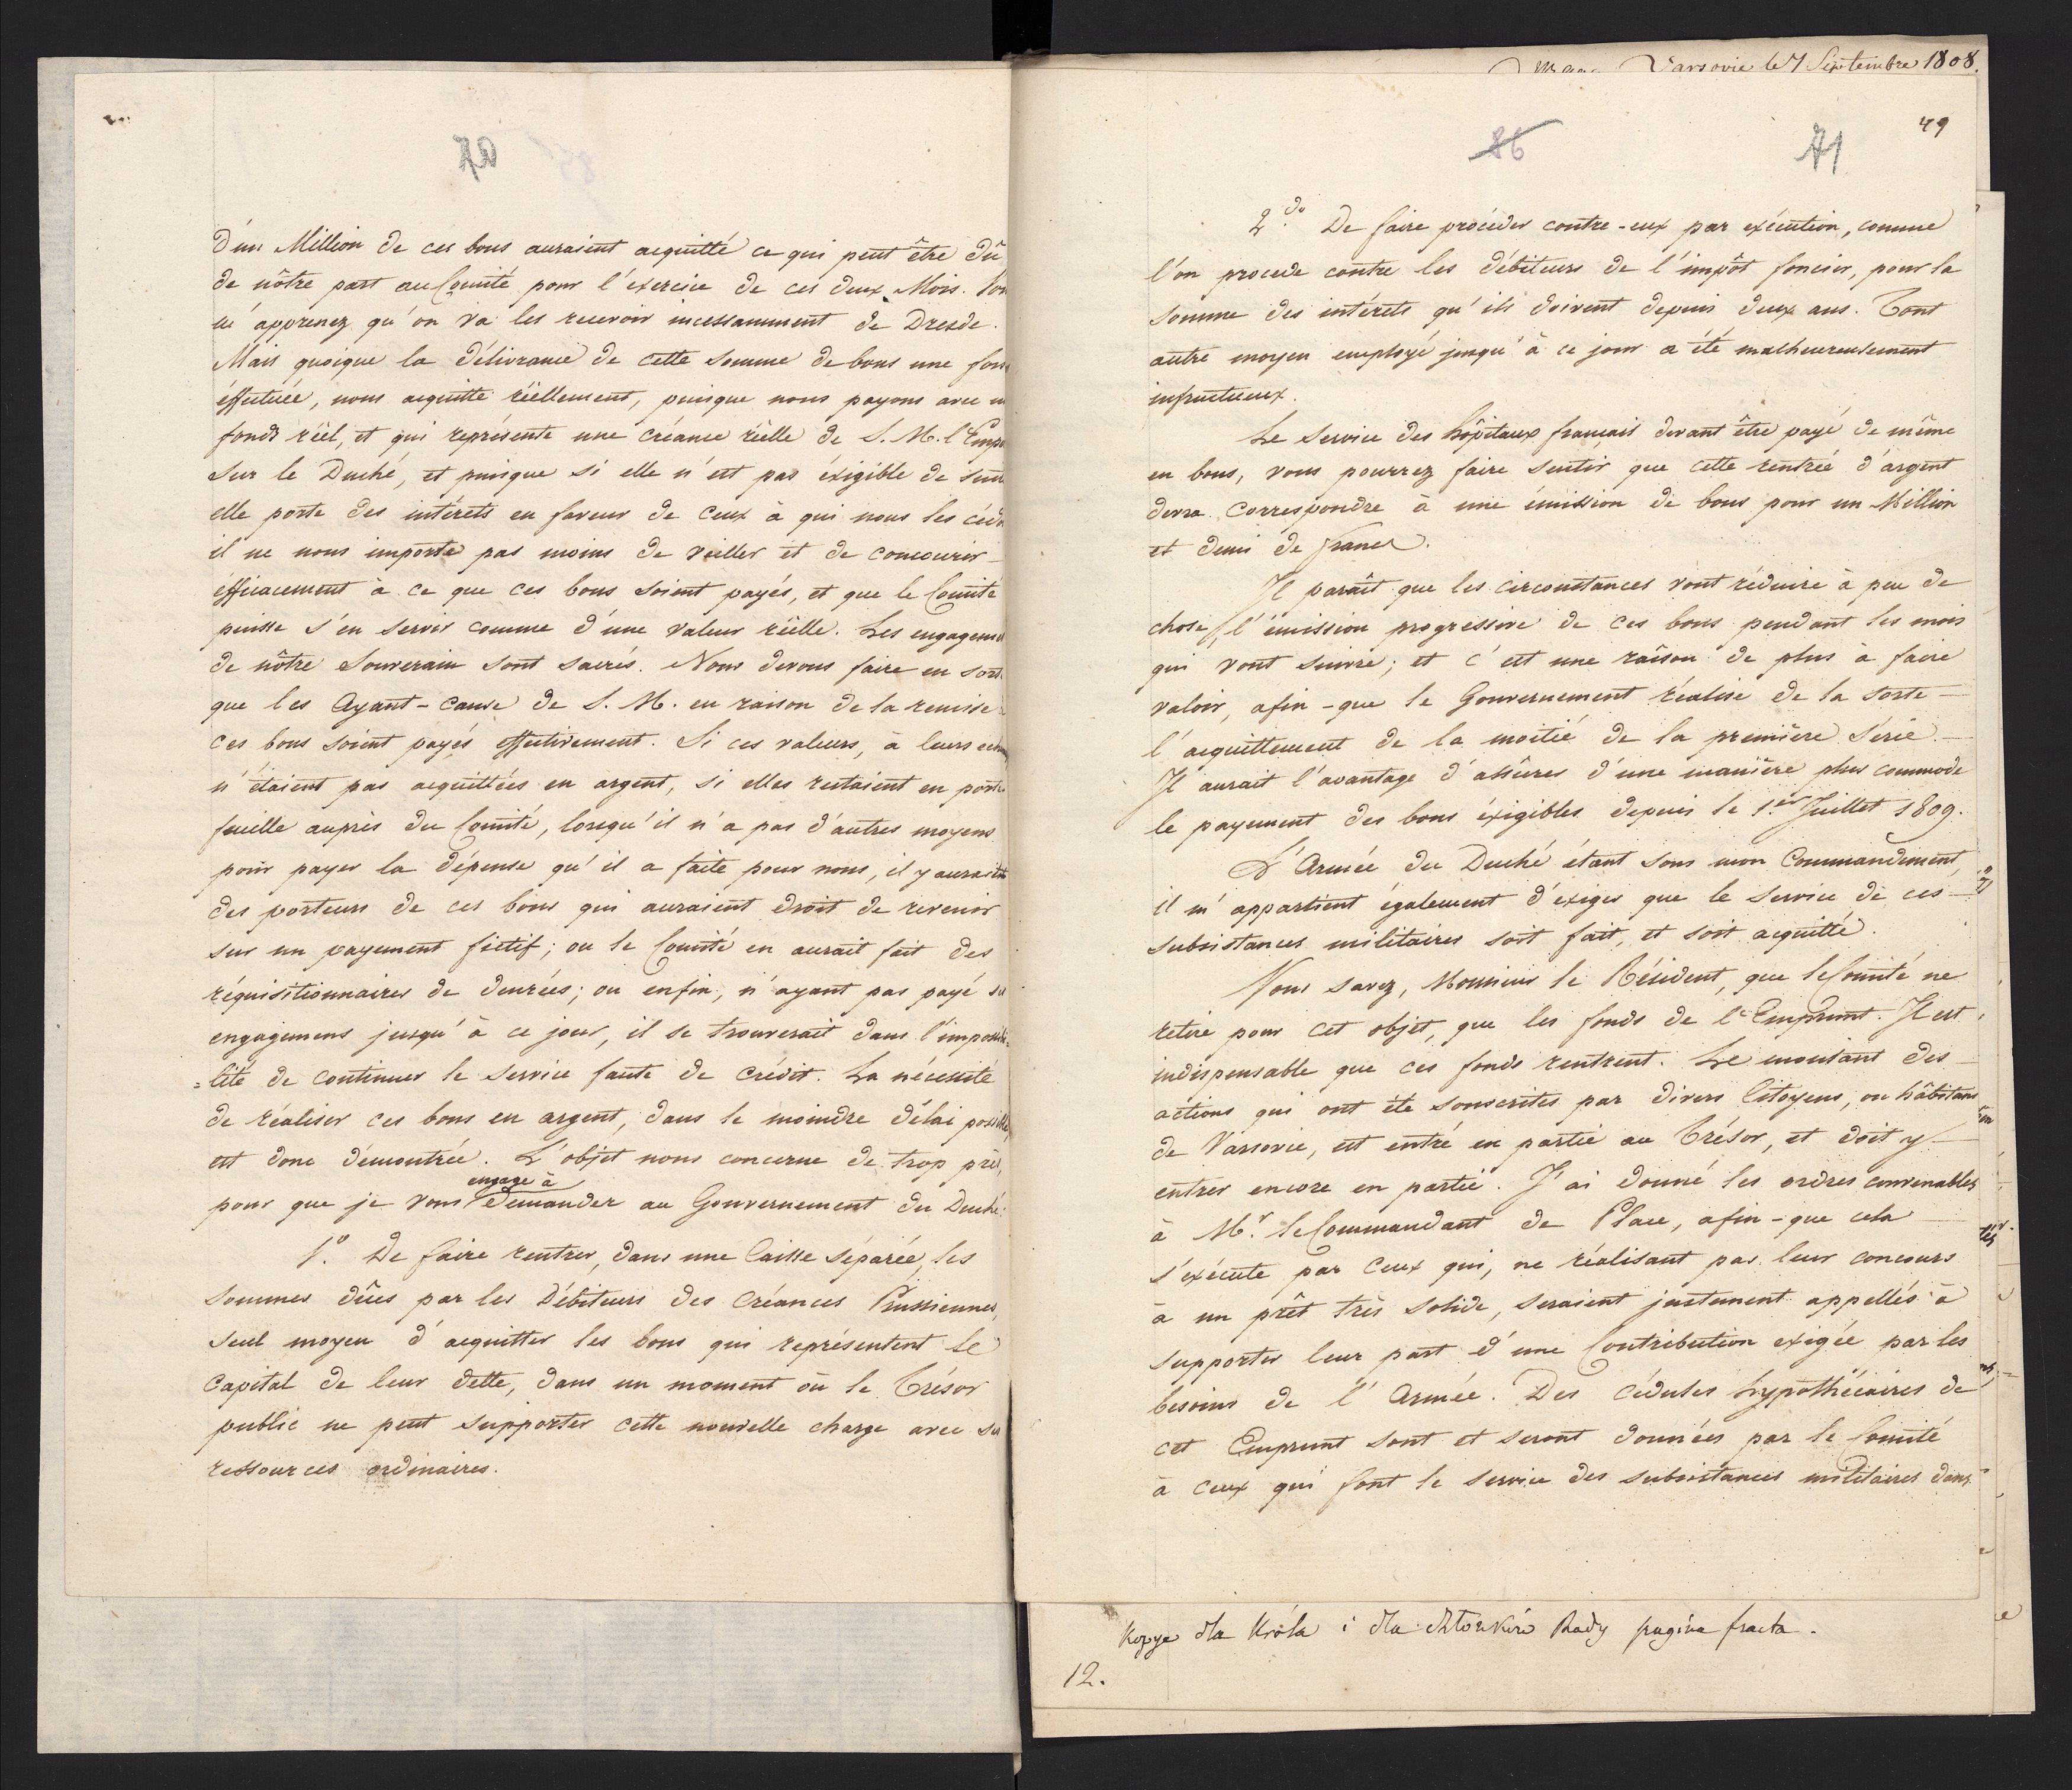 70
d'un Million de ces bons auraient acquitté ce qui peut être dû
de nôtre part au Comité pour l'exercice de ces deux Mois. Vou
m'apprenez qu'on va les recevoir incessamment de Dresde.
Mais quoique la délivrance de cette somme de bons une fois
éffectuée, nous acquitte réellement, puisque nous payons avec un
fonds réel, et qui représente une créance réelle de S. M. l'Empe
sur le Duché, et puisque si elle n'est pas éxigible de suite
elle porte des intérets en faveur de ceux à qui nous les cédo
il ne nous importe pas moins de veiller et de concourir
éfficacement à ce que ces bons soient payés, et que le Comité
puisse s'en servir comme d'une valeur réelle. Les engagemen
de nôtre Souverain sont sacrés. Nous devons faire en sorte
que les Ayant-cause de S. M. en raison de la remise
ces bons soient payés effectivement. Si ces valeurs, à leurs eche
n'étaient pas acquittées en argent, si elles restaient en porte
feuille auprès du Comité, lorsqu'il n'a pas d'autres moyens
pour payer la dépense qu'il a faite pour nous, il y aurait
des porteurs de ces bons qui auraient droit de revenir
sur un payement fictif; ou le Comité en aurait fait des
réquisitionnaires de denrées; ou enfin, n'ayant pas payé ses
engagemens jusqu'à ce jour, il se trouverait dans l'impossibi
=lité de continuer le service faute de crédit. La nécessité
de réaliser ces bons en argent, dans le moindre délai possible,
est donc démontrée. L'objet nous concerne de trop près,
engage à
pour que je vous demander au Gouvernement du Duché:
1.o De faire rentrer, dans une Caisse séparée, les
sommes dûes par les Débiteurs des Créances Prussiennes,
seul moyen d'acquitter les bons qui représentent le
capital de leur dette, dans un moment où le Trésor
public ne peut supporter cette nouvelle charge avec ses
ressources ordinaires.
Varsovie le 7 Septembre 1808.
49
86
71
2.do De faire procéder contre-eux par exécution, comme
l'on procede contre les débiteurs de l'impôt foncier, pour la
somme des intérets qu'ils doivent depuis deux ans. Tout
autre moyen employé jusqu'à ce jour a été malheureusement
infructueux.
Le service des hôpitaux français devant être payé de même
en bons, vous pourrez faire sentir que cette rentrée d'argent
devra correspondre à une émission de bons pour un Million
et demi de francs.
Il paraît que les circonstances vont réduire à peu de
chose, l'émission progressive de ces bons pendant les mois
qui vont suivre; et c'est une raison de plus à faire
valoir, afin-que le Gouvernement réalise de la sorte
l'acquittement de la moitié de la première série.
Il aurait l'avantage d'assûrer d'une manière plus commode
le payement des bons éxigibles depuis le 1.er Juillet 1809.
L'Armée du Duché étant sous mon Commandement,
il m'appartient également d'éxiger que le service de ces
subsistances militaires soit fait, et soit acquitté.
Vous savez, Monsieur le Résident, que le Comité ne
retire pour cet objet, que les fonds de l'Emprunt. Il est
indispensable que ces fonds rentrent. Le montant des
actions qui ont été souscrites par divers Citoyens, ou hâbitans
de Varsovie, est entré en partie au Trésor, et doit y
entrer encore en partie. J'ai donné les ordres convenables
à M.r le Commandant de Place, afin-que cela
s'exécute par ceux qui, ne réalisant pas leur concours
à un prêt très solide, seraient justement appellés à
supporter leur part d'une Contribution exigée par les
besoins de l'Armée. Des cédules hypothécaires de
cet Emprunt sont et seront données par le Comité
à ceux qui font le service des subsistances militaires dans
Kopya dla Króla i dla Członków Rady pagina fracta.
12.